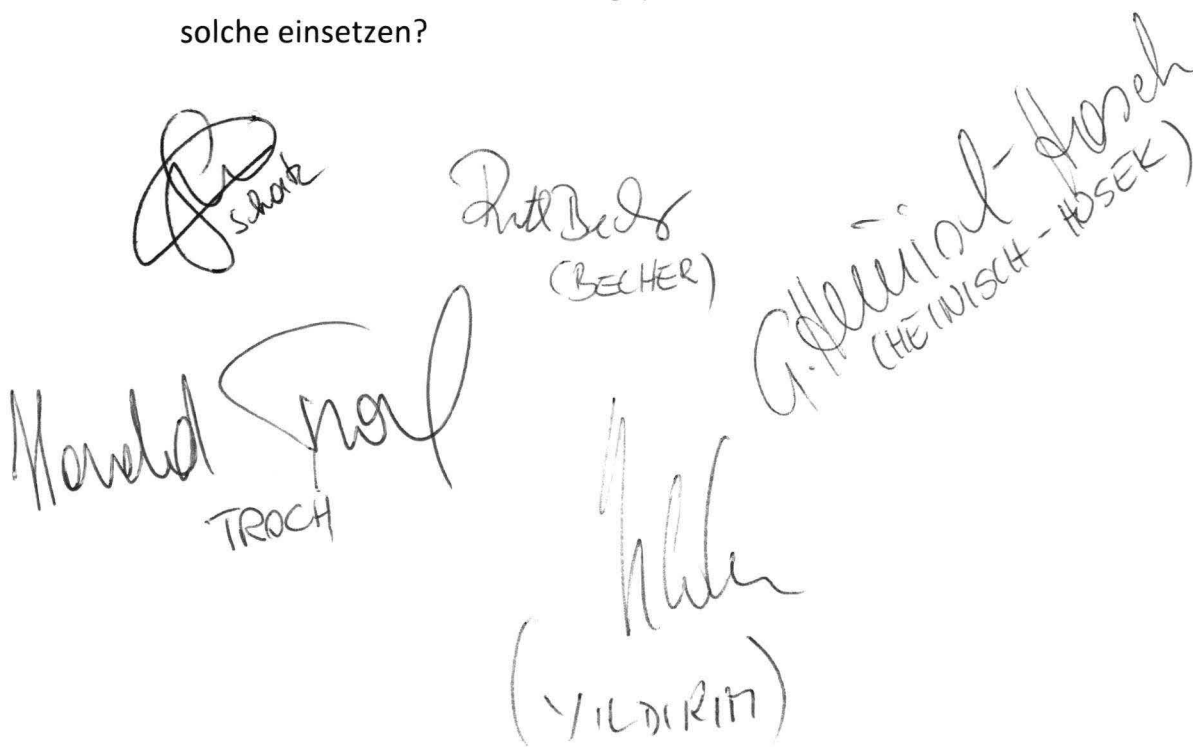 solche einsetzen?
Schatz
Ruth Becher
(BECHER)
G. Heinisch-Hosek
(HEINISCH-HOSEK)
Harald Troch
TROCH
(YILDIRIM)